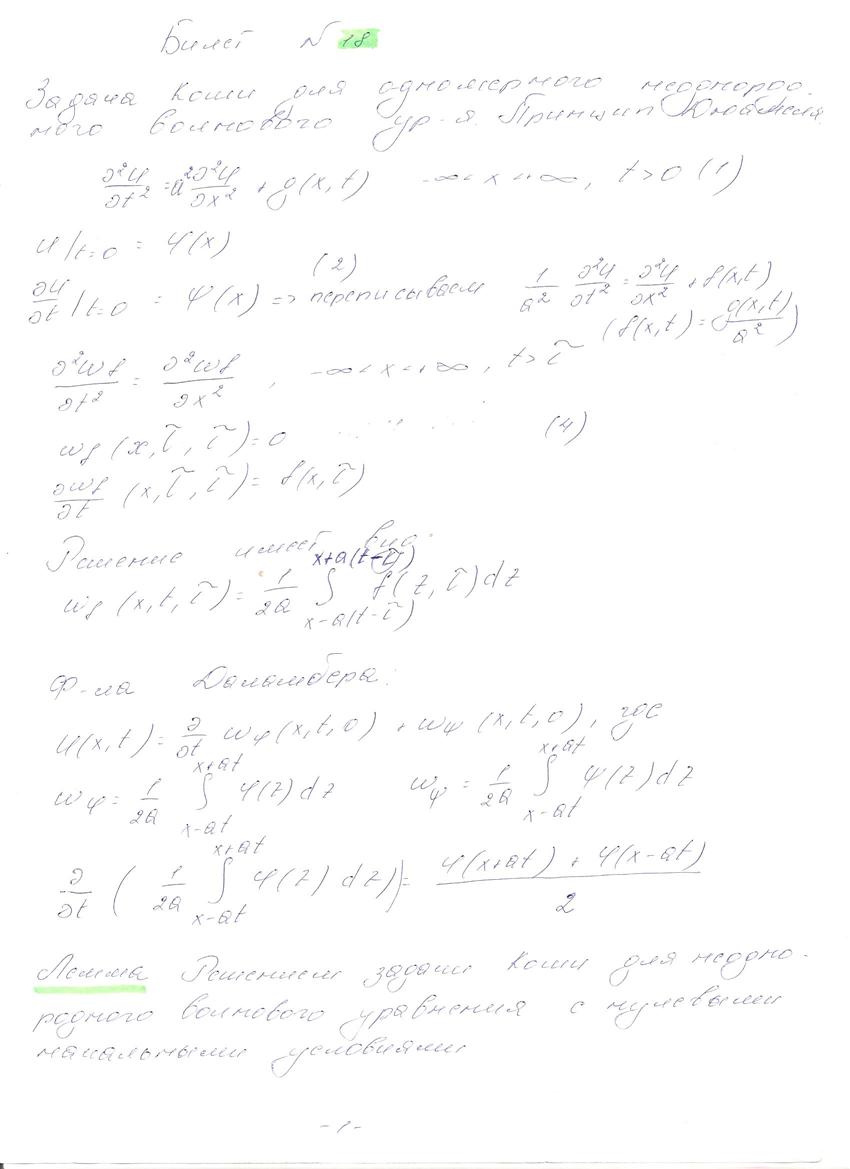 Билет N 18
Задача Коши для одномерного неоднород-
ного волнового ур-я. Принцип Дюамеля.
∂²U/∂t² = a² ∂²U/∂x² + g(x,t) -∞<x<+∞, t>0 (1)
U|t=0 = φ(x)
(2)
∂U/∂t|t=0 = ψ(x) => переписываем 1/a² ∂²U/∂t² = ∂²U/∂x² + f(x,t)
(f(x,t) = g(x,t)/a²)
∂²wf/∂t² = ∂²wf/∂x², -∞<x<+∞, t>τ
wf (x,τ,τ)=0 (4)
∂wf/∂t (x,τ,τ)= f(x,τ)
Решение имеет вид:
wf (x,t,τ)= 1/2a ∫_{x-a(t-τ)}^{x+a(t-τ)} f(z,τ)dz
Ф-ла Даламбера:
U(x,t)= ∂/∂t wφ(x,t,0) + wψ (x,t,0), где
wφ= 1/2a ∫_{x-at}^{x+at} φ(z)dz wψ = 1/2a ∫_{x-at}^{x+at} ψ(z)dz
∂/∂t ( 1/2a ∫_{x-at}^{x+at} φ(z) dz)= (φ(x+at) + φ(x-at))/2
Лемма Решением задачи Коши для неодно-
родного волнового уравнения с нулевыми
начальными условиями
-1-